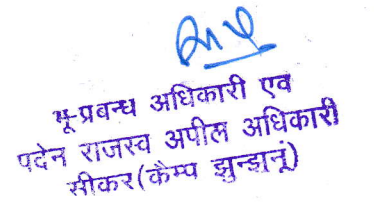 भू-प्रबन्ध अधिकारी एव
पदेन राजस्व अपील अधिकारी
सीकर(कैम्प झुन्झुनूं)